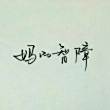 妈的智障